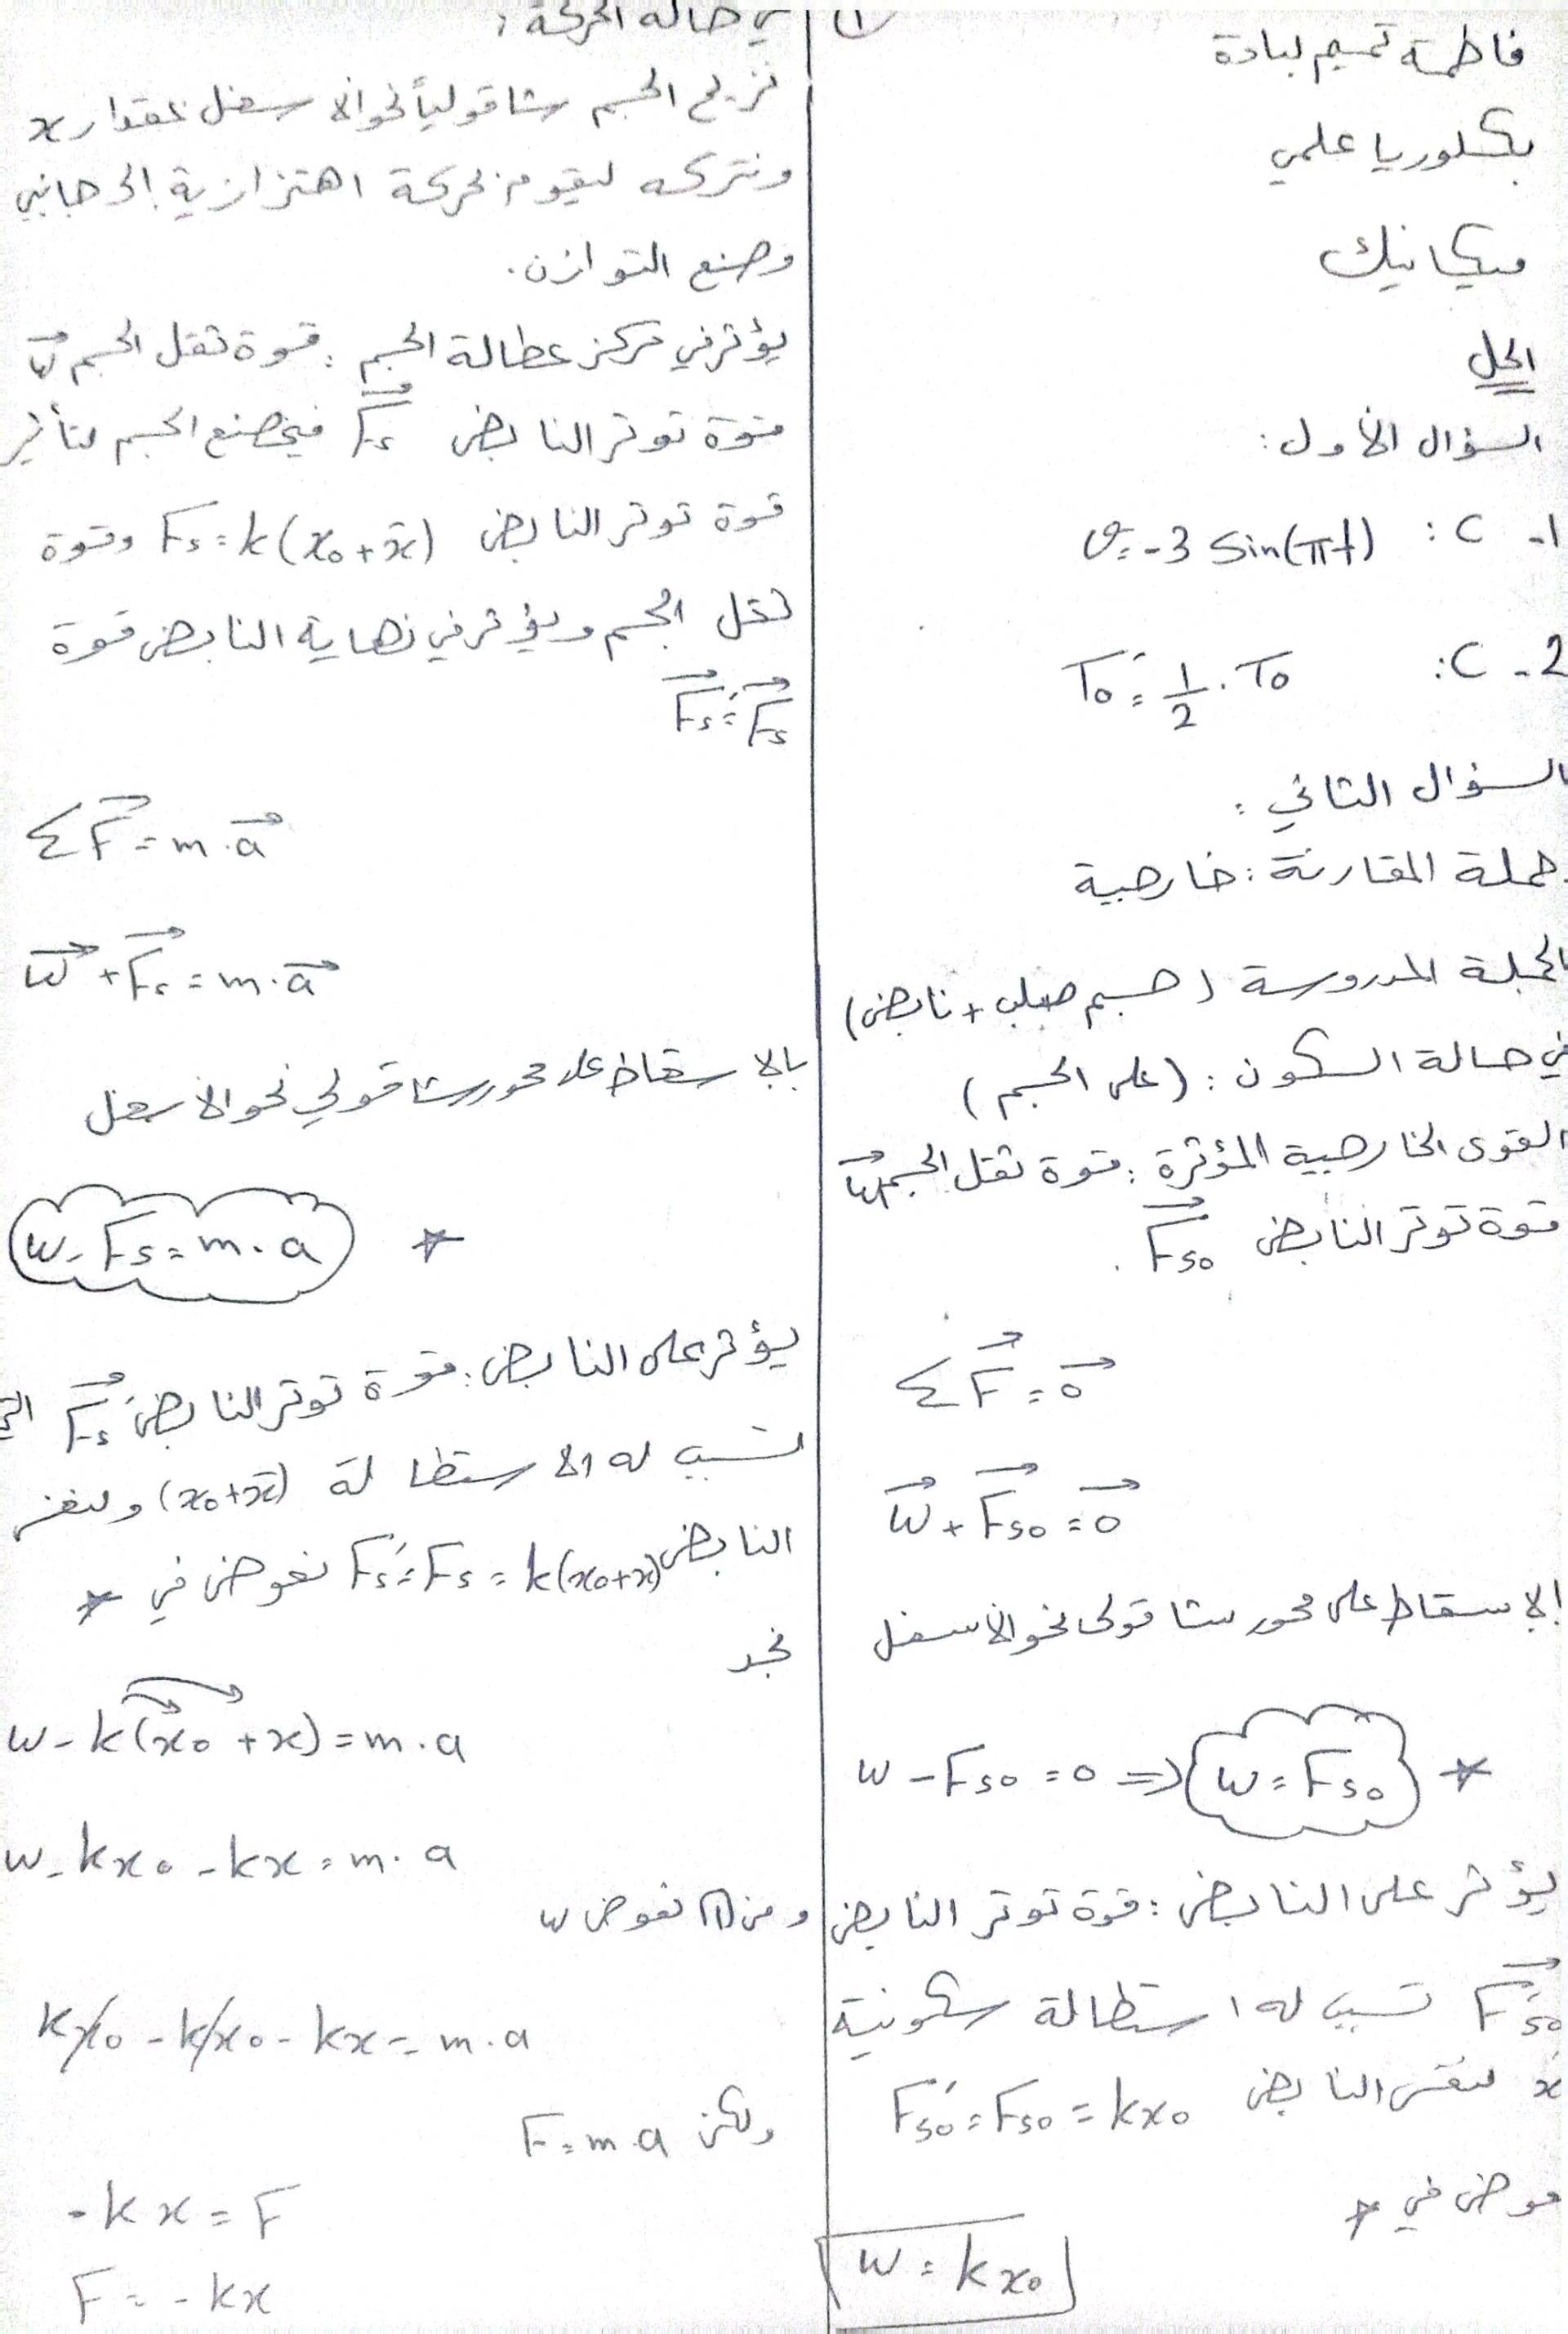 ①
فاطمة تميم لبادة
بكلوريا علمي
ميكانيك
الحل
السؤال الأول:
1- C : v = -3 sin(πt)
2- C : T₀' = 1/2 . T₀
السؤال الثاني :
جملة المقارنة : خارجية
الجملة المدروسة (جسم صلب + نابض)
في حالة السكون : (على الجسم)
القوى الخارجية المؤثرة : قوة ثقل الجسم w⃗
قوة توتر النابض F⃗s₀ .
Σ F⃗ = 0⃗
w⃗ + F⃗s₀ = 0⃗
الاسقاط على محور شاقولي نحو الأسفل
w - Fs₀ = 0 ⇒ w = Fs₀ *
يؤثر على النابض : قوة توتر النابض
F⃗'s₀ تسبب له استطالة سكونية
x لنفس النابض F's₀ = Fs₀ = kx₀
عوض في *
w = kx₀
في حالة الحركة :
نزيح الجسم شاقولياً نحو الأسفل بمقدار x
ونتركه ليقوم بحركة اهتزازية إلى جانبي
وضع التوازن.
يؤثر في مركز عطالة الجسم : قوة ثقل الجسم w⃗
قوة توتر النابض F⃗s فيخضع الجسم لتأثير
قوة توتر النابض Fs = k(x₀ + x̄) وقوة
ثقل الجسم ويؤثر في نهاية النابض قوة
F⃗s = F⃗'s
Σ F⃗ = m . a⃗
w⃗ + F⃗s = m . a⃗
بالاسقاط على محور شاقولي نحو الأسفل
w - Fs = m . a *
يؤثر على النابض : قوة توتر النابض F⃗'s التي
تسبب له الاستطالة (x₀ + x̄) ولنفس
النابض Fs' = Fs = k(x₀+x) نعوض في *
نجد
w - k(x₀ + x) = m . a
w - kx₀ - kx = m . a
ومن (1) نعوض w
kx₀ - kx₀ - kx = m . a
ولكن F = m . a
- k x = F
F = - kx